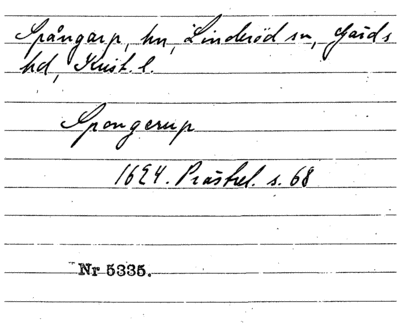 Spångarp, hn, Linderöd sn, Gärds
hd, Krist. l.
Spongerup
1624. Prästrel. s. 68
Nr 5335.